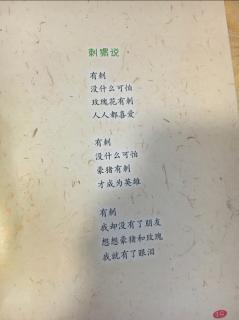 刺猬说
有刺
没什么可怕
玫瑰花有刺
人人都喜爱
有刺
没什么可怕
豪猪有刺
才成为英雄
有刺
我却没有了朋友
想想豪猪和玫瑰
我就有了眼泪